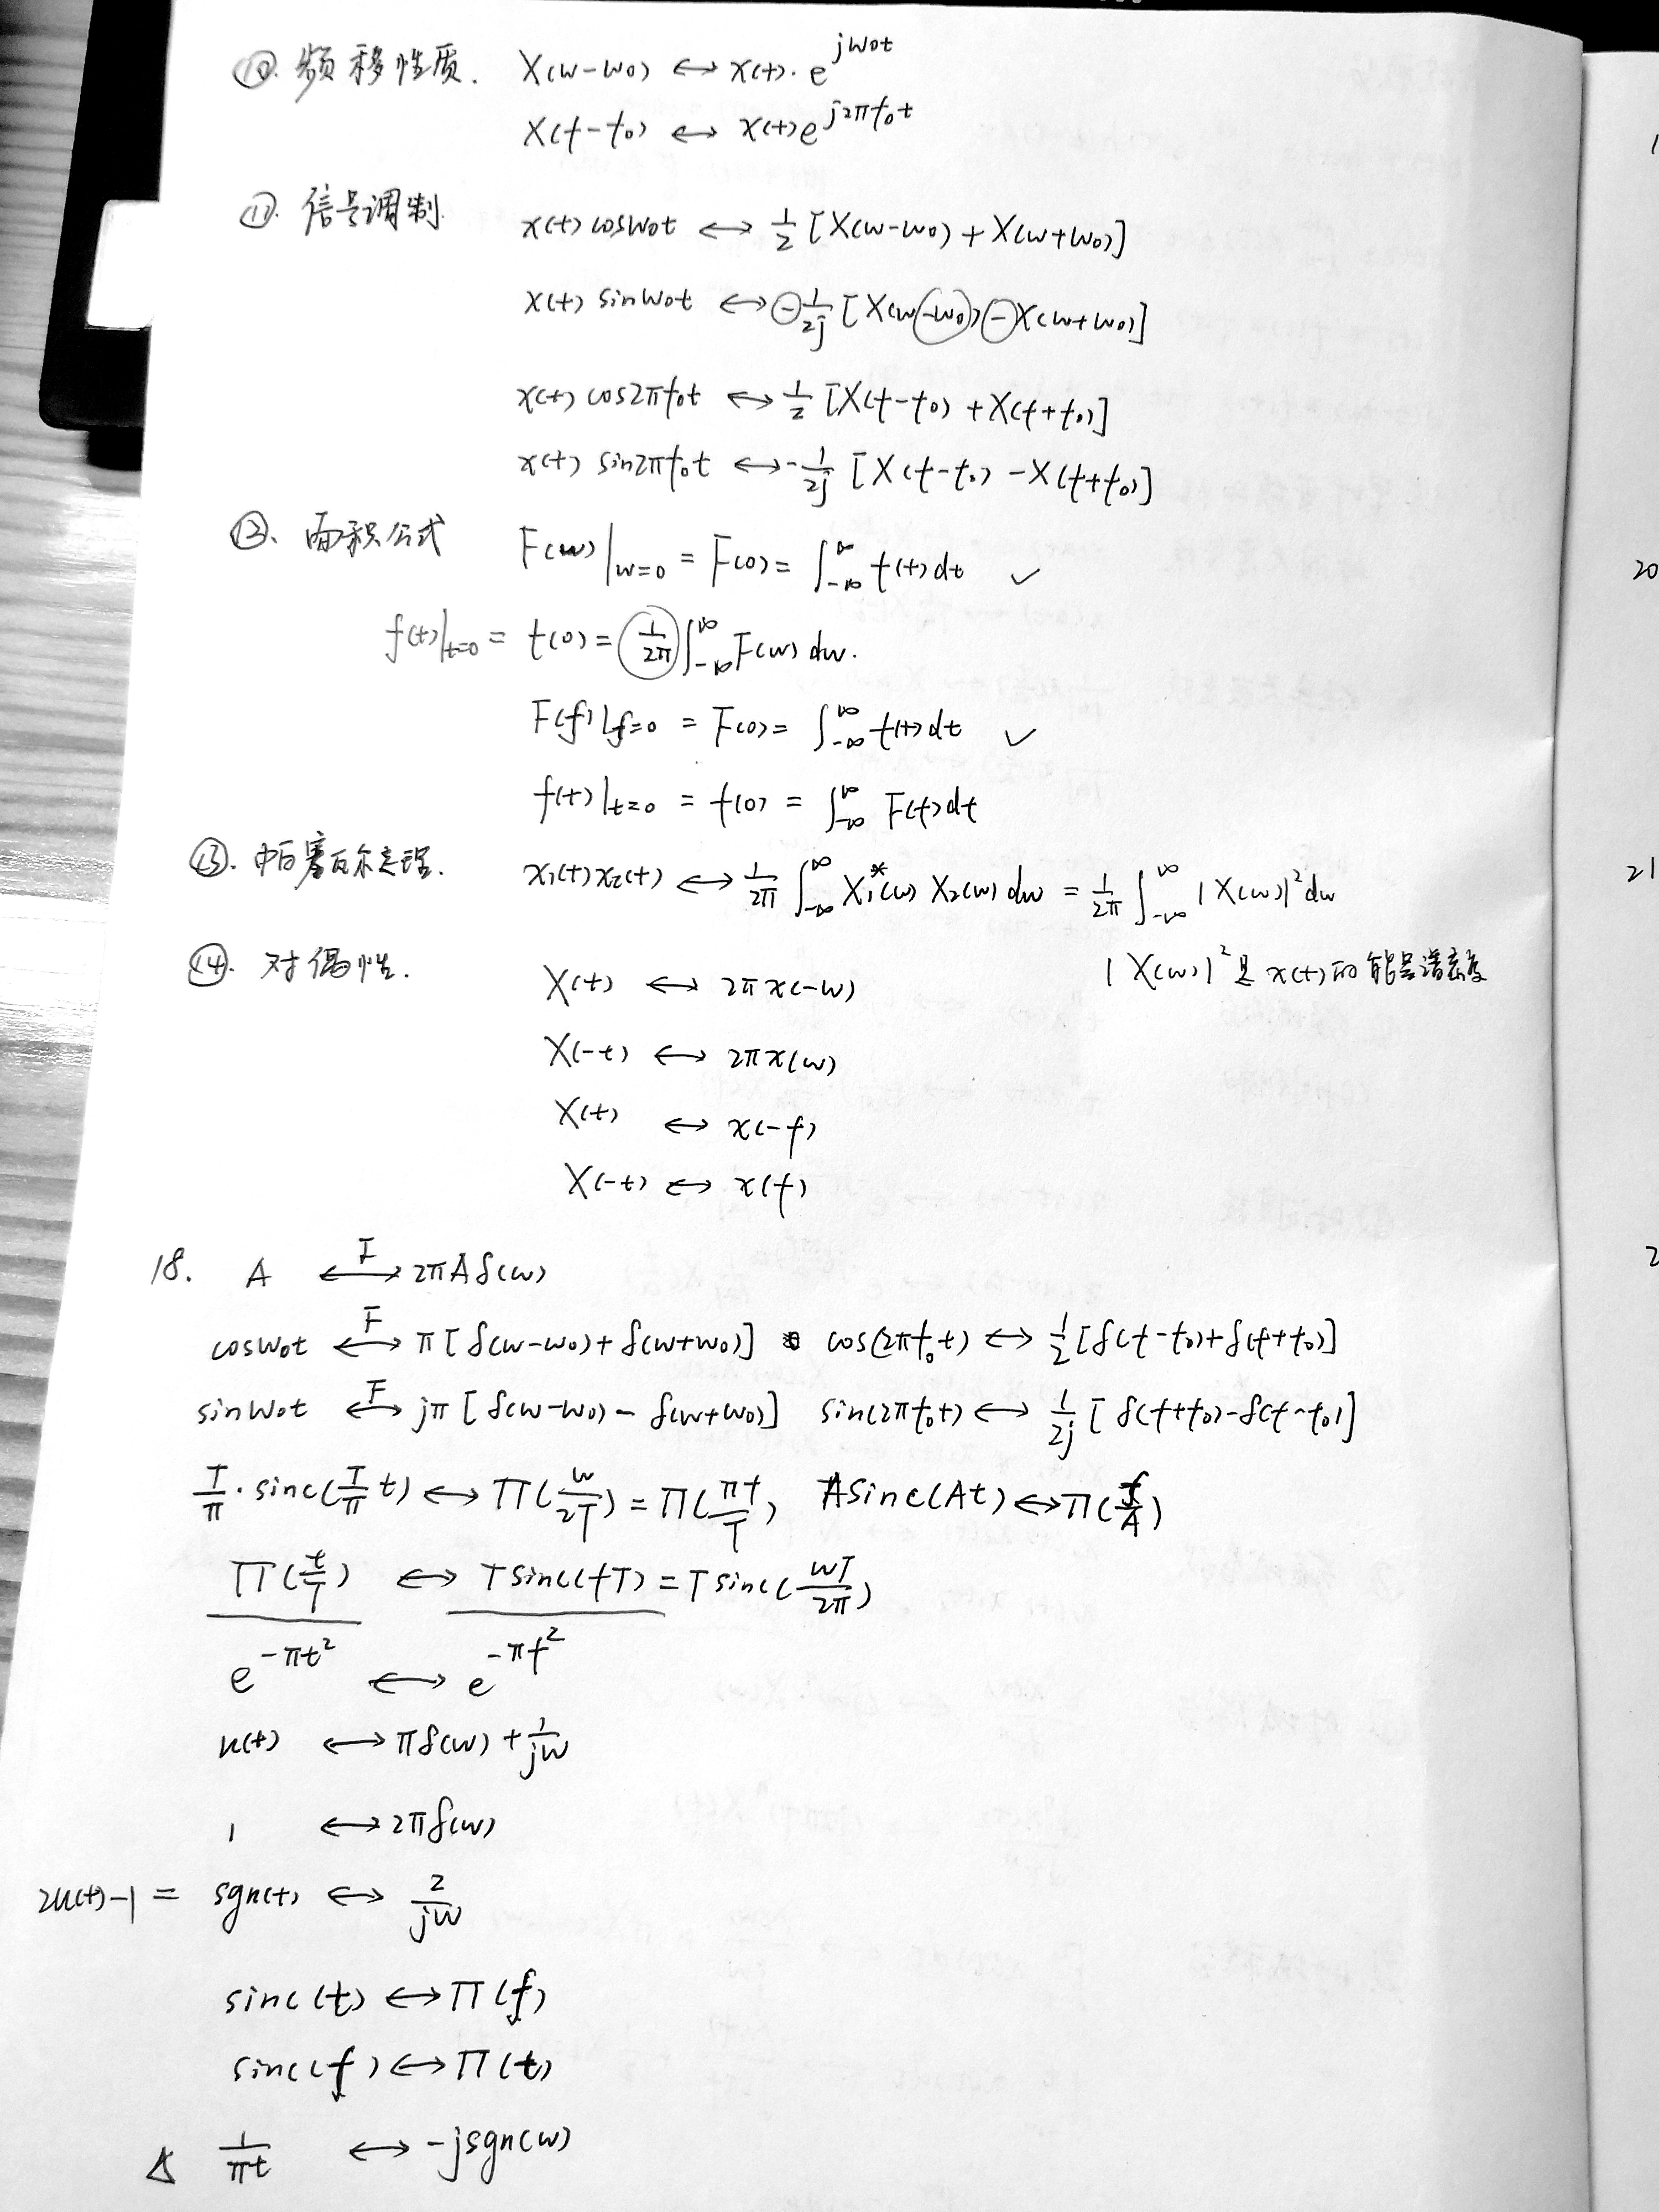 ⑩. 频移性质. X(w-w0) ↔ x(t)·e^{jw0t}
X(f-f0) ↔ x(t)e^{j2πf0t}
⑪. 信号调制. x(t)cosw0t ↔ 1/2 [X(w-w0)+X(w+w0)]
x(t) sinw0t ↔ -1/2j [X(w-w0)-X(w+w0)]
x(t) cos2πf0t ↔ 1/2 [X(f-f0)+X(f+f0)]
x(t) sin2πf0t ↔ -1/2j [X(f-f0)-X(f+f0)]
⑫. 面积公式 F(w)|w=0 = F(0) = ∫_{-∞}^{∞} f(t)dt ✓
f(t)|t=0 = f(0) = 1/2π ∫_{-∞}^{∞} F(w)dw.
F(f)|f=0 = F(0) = ∫_{-∞}^{∞} f(t)dt ✓
f(t)|t=0 = f(0) = ∫_{-∞}^{∞} F(f)df
⑬. 帕塞瓦尔定理. x1(t)x2(t) ↔ 1/2π ∫_{-∞}^{∞} X1*(w) X2(w)dw = 1/2π ∫_{-∞}^{∞} |X(w)|²dw
|X(w)|²是x(t)的能量谱密度
⑭. 对偶性. X(t) ↔ 2πx(-w)
X(-t) ↔ 2πx(w)
X(t) ↔ x(-f)
X(-t) ↔ x(f)
18. A ↔^F 2πAδ(w)
cosw0t ↔^F π[δ(w-w0)+δ(w+w0)] cos(2πf0t) ↔ 1/2 [δ(f-f0)+δ(f+f0)]
sinw0t ↔^F jπ[δ(w-w0)-δ(w+w0)] sin(2πf0t) ↔ 1/2j [δ(f+f0)-δ(f-f0)]
T/π · sinc(T/π t) ↔ Π(w/2T) = Π(πf/T), Asinc(At) ↔ Π(f/A)
Π(t/T) ↔ Tsinc(fT) = Tsinc(wT/2π)
e^{-πt²} ↔ e^{-πf²}
u(t) ↔ πδ(w)+1/jw
1 ↔ 2πδ(w)
2u(t)-1 = sgn(t) ↔ 2/jw
sinc(t) ↔ Π(f)
sinc(f) ↔ Π(t)
1/πt ↔ -jsgn(w)
20
21
2